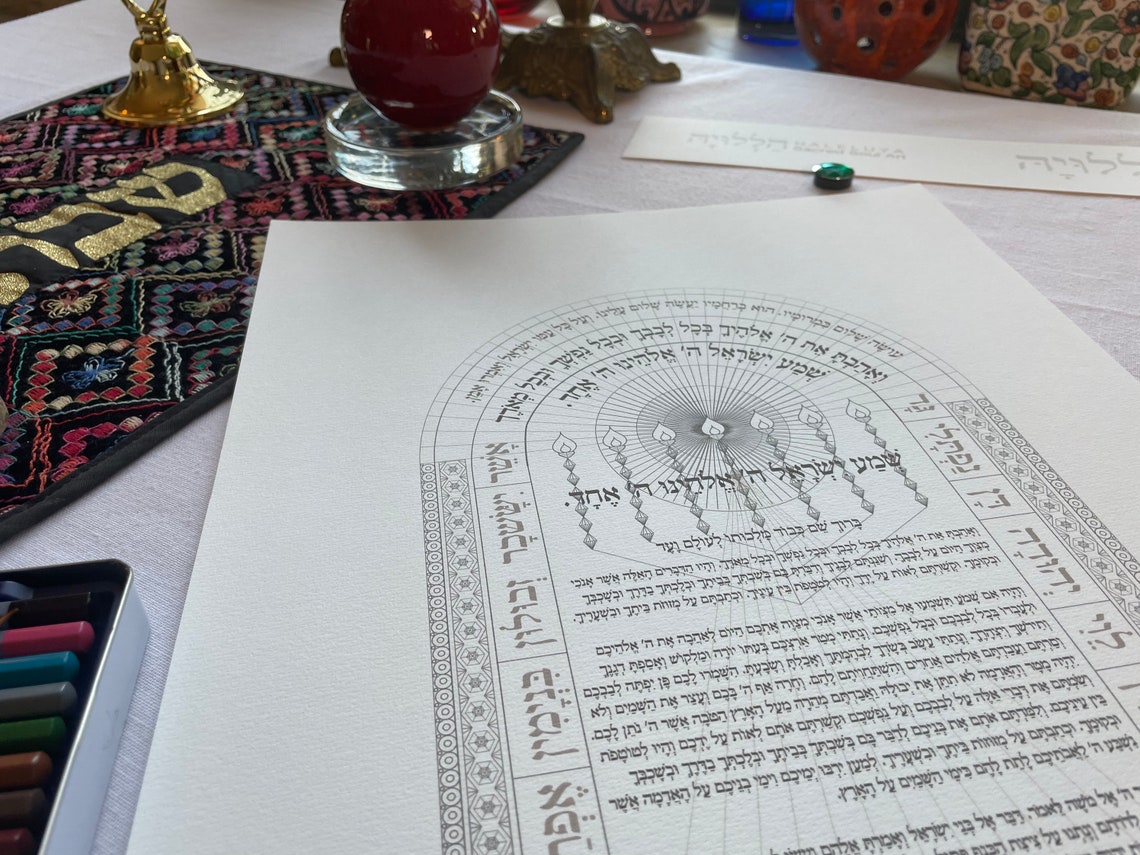 הללויה HALELUYA
ללויה
שבת
עושה שלום במרומיו, הוא ברחמיו יעשה שלום עלינו, ועל כל עמו ישראל ואמרו אמן
וְאָהַבְתָּ אֵת ה' אֱלֹהֶיךָ בְּכָל לְבָבְךָ וּבְכָל נַפְשְׁךָ וּבְכָל מְאֹדֶךָ
שְׁמַע יִשְׂרָאֵל ה' אֱלֹהֵינוּ ה' אֶחָד.
שְׁמַע יִשְׂרָאֵל ה' אֱלֹהֵינוּ ה' אֶחָד.
בָּרוּךְ שֵׁם כְּבוֹד מַלְכוּתוֹ לְעוֹלָם וָעֶד
וְאָהַבְתָּ אֵת ה' אֱלֹהֶיךָ בְּכָל לְבָבְךָ וּבְכָל נַפְשְׁךָ וּבְכָל מְאֹדֶךָ. וְהָיוּ הַדְּבָרִים הָאֵלֶּה אֲשֶׁר אָנֹכִי
מְצַוְּךָ הַיּוֹם עַל לְבָבֶךָ. וְשִׁנַּנְתָּם לְבָנֶיךָ וְדִבַּרְתָּ בָּם בְּשִׁבְתְּךָ בְּבֵיתֶךָ וּבְלֶכְתְּךָ בַדֶּרֶךְ וּבְשָׁכְבְּךָ
וּבְקוּמֶךָ. וּקְשַׁרְתָּם לְאוֹת עַל יָדֶךָ וְהָיוּ לְטֹטָפֹת בֵּין עֵינֶיךָ. וּכְתַבְתָּם עַל מְזֻזוֹת בֵּיתֶךָ וּבִשְׁעָרֶיךָ.
וְהָיָה אִם שָׁמֹעַ תִּשְׁמְעוּ אֶל מִצְוֹתַי אֲשֶׁר אָנֹכִי מְצַוֶּה אֶתְכֶם הַיּוֹם לְאַהֲבָה אֶת ה' אֱלֹהֵיכֶם
וּלְעָבְדוֹ בְּכָל לְבַבְכֶם וּבְכָל נַפְשְׁכֶם. וְנָתַתִּי מְטַר אַרְצְכֶם בְּעִתּוֹ יוֹרֶה וּמַלְקוֹשׁ וְאָסַפְתָּ דְגָנֶךָ
וְתִירֹשְׁךָ וְיִצְהָרֶךָ. וְנָתַתִּי עֵשֶׂב בְּשָׂדְךָ לִבְהֶמְתֶּךָ וְאָכַלְתָּ וְשָׂבָעְתָּ. הִשָּׁמְרוּ לָכֶם פֶּן יִפְתֶּה לְבַבְכֶם
וְסַרְתֶּם וַעֲבַדְתֶּם אֱלֹהִים אֲחֵרִים וְהִשְׁתַּחֲוִיתֶם לָהֶם. וְחָרָה אַף ה' בָּכֶם וְעָצַר אֶת הַשָּׁמַיִם וְלֹא
יִהְיֶה מָטָר וְהָאֲדָמָה לֹא תִתֵּן אֶת יְבוּלָהּ וַאֲבַדְתֶּם מְהֵרָה מֵעַל הָאָרֶץ הַטֹּבָה אֲשֶׁר ה' נֹתֵן לָכֶם.
וְשַׂמְתֶּם אֶת דְּבָרַי אֵלֶּה עַל לְבַבְכֶם וְעַל נַפְשְׁכֶם וּקְשַׁרְתֶּם אֹתָם לְאוֹת עַל יֶדְכֶם וְהָיוּ לְטוֹטָפֹת
בֵּין עֵינֵיכֶם. וְלִמַּדְתֶּם אֹתָם אֶת בְּנֵיכֶם לְדַבֵּר בָּם בְּשִׁבְתְּךָ בְּבֵיתֶךָ וּבְלֶכְתְּךָ בַדֶּרֶךְ וּבְשָׁכְבְּךָ
וּבְקוּמֶךָ. וּכְתַבְתָּם עַל מְזוּזוֹת בֵּיתֶךָ וּבִשְׁעָרֶיךָ. לְמַעַן יִרְבּוּ יְמֵיכֶם וִימֵי בְנֵיכֶם עַל הָאֲדָמָה אֲשֶׁר
נִשְׁבַּע ה' לַאֲבֹתֵיכֶם לָתֵת לָהֶם כִּימֵי הַשָּׁמַיִם עַל הָאָרֶץ.
ה' אֶל מֹשֶׁה לֵּאמֹר. דַּבֵּר אֶל בְּנֵי יִשְׂרָאֵל וְאָמַרְתָּ אֲלֵהֶם
גָּד
נַפְתָּלִי
דָּן
יְהוּדָה
לֵוִי
אָשֵׁר
יִשָּׂשכָר
זְבוּלוּן
בִּנְיָמִין
אֶפְרַ